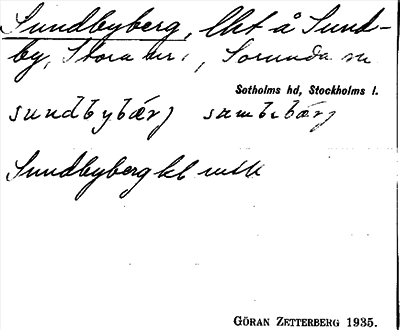 Sundbyberg, lht å Sund-
by, Stora nr 1, Sorunda sn
Sotholms hd, Stockholms l.
sundbybærj sumbibærj
Sundbyberg kl
GÖRAN ZETTERBERG 1935.